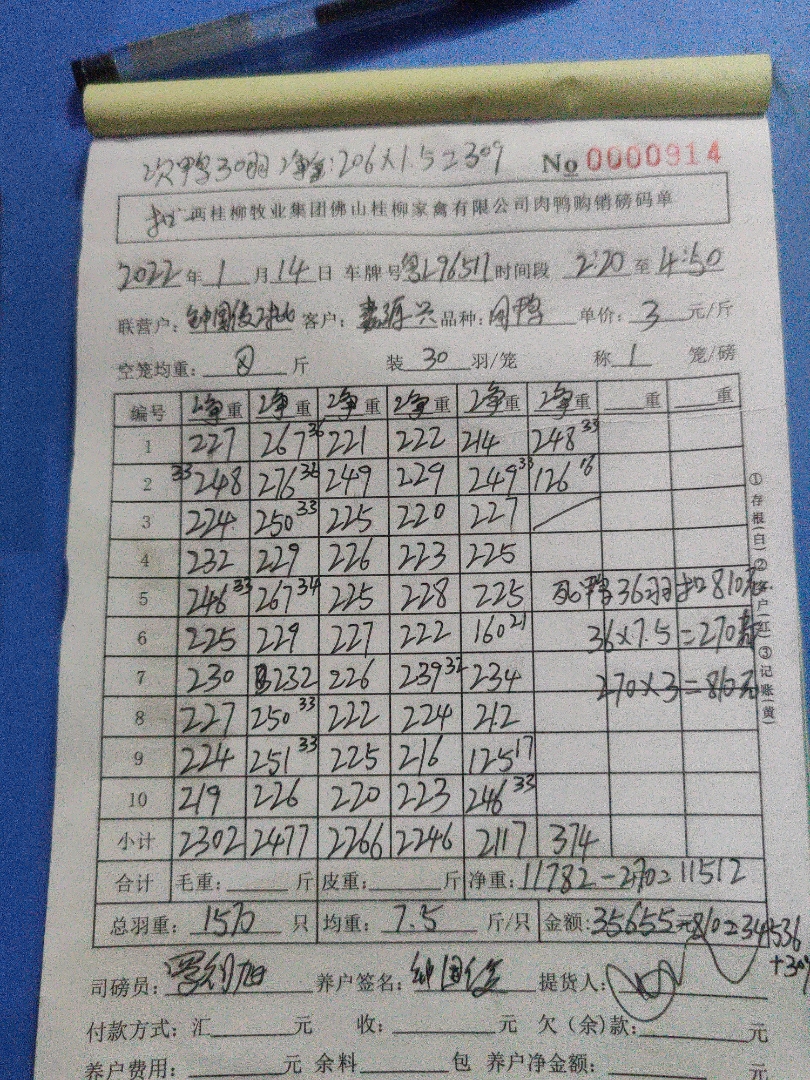 次鸭30羽 净重:206×1.5=309 No 0000914
扣 西桂柳牧业集团佛山桂柳家禽有限公司肉鸭购销磅码单
2022年1月14日 车牌号粤L96517时间段 2:20至4:50
联营户: 客户: 源兴 品种:肉鸭 单价:3元/斤
空笼均重: 斤 装30羽/笼 称1笼/磅
编号 净重 净重 净重 净重 净重 净重 重 重
1 227 267 36 221 222 214 248 33
2 33 248 276 36 249 229 249 33 126 18
3 224 250 33 225 220 227
4 232 229 226 223 225
5 246 33 267 34 225 228 225 死鸭36羽扣810元
6 225 229 227 222 160 21 36×7.5=270斤
7 230 232 226 239 32 234 270×3=810元
8 227 250 33 222 224 212
9 224 251 33 225 216 125 17
10 219 226 220 223 246 33
小计 2302 2477 2266 2246 2117 374
合计 毛重: 斤 皮重: 斤 净重:11782-270=11512
总羽重:1570只 均重:7.5斤/只 金额:35655元 810=34536
+309
司磅员: 养户签名: 提货人:
付款方式:汇 元 收: 元 欠(余)款: 元
养户费用: 元 余料 包 养户净金额: 元
①存根(白)②客户(红)③记账(黄)